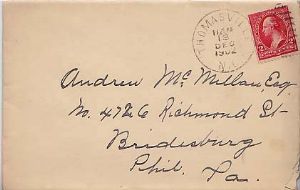 THOMASVILLE
12 M
DEC
1902
N.C.
2 2
Andrew McMillan, Esq
No. 4726 Richmond St-
Bridesburg
Phil. Pa.